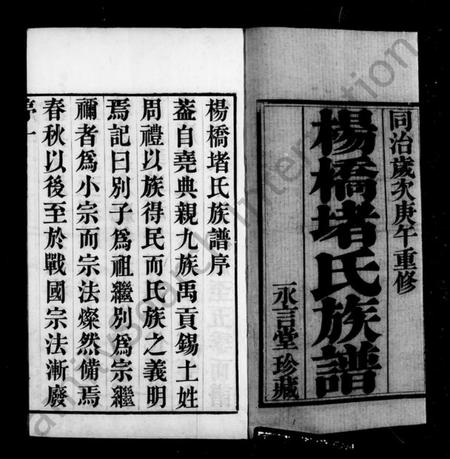 同治歲次庚午重修
楊橋堵氏族譜
永言堂珍藏
楊橋堵氏族譜序
蓋自堯典親九族禹貢錫土姓
周禮以族得民而氏族之義明
焉記曰別子為祖繼別為宗繼
禰者為小宗而宗法燦然備焉
春秋以後至於戰國宗法漸廢
序一